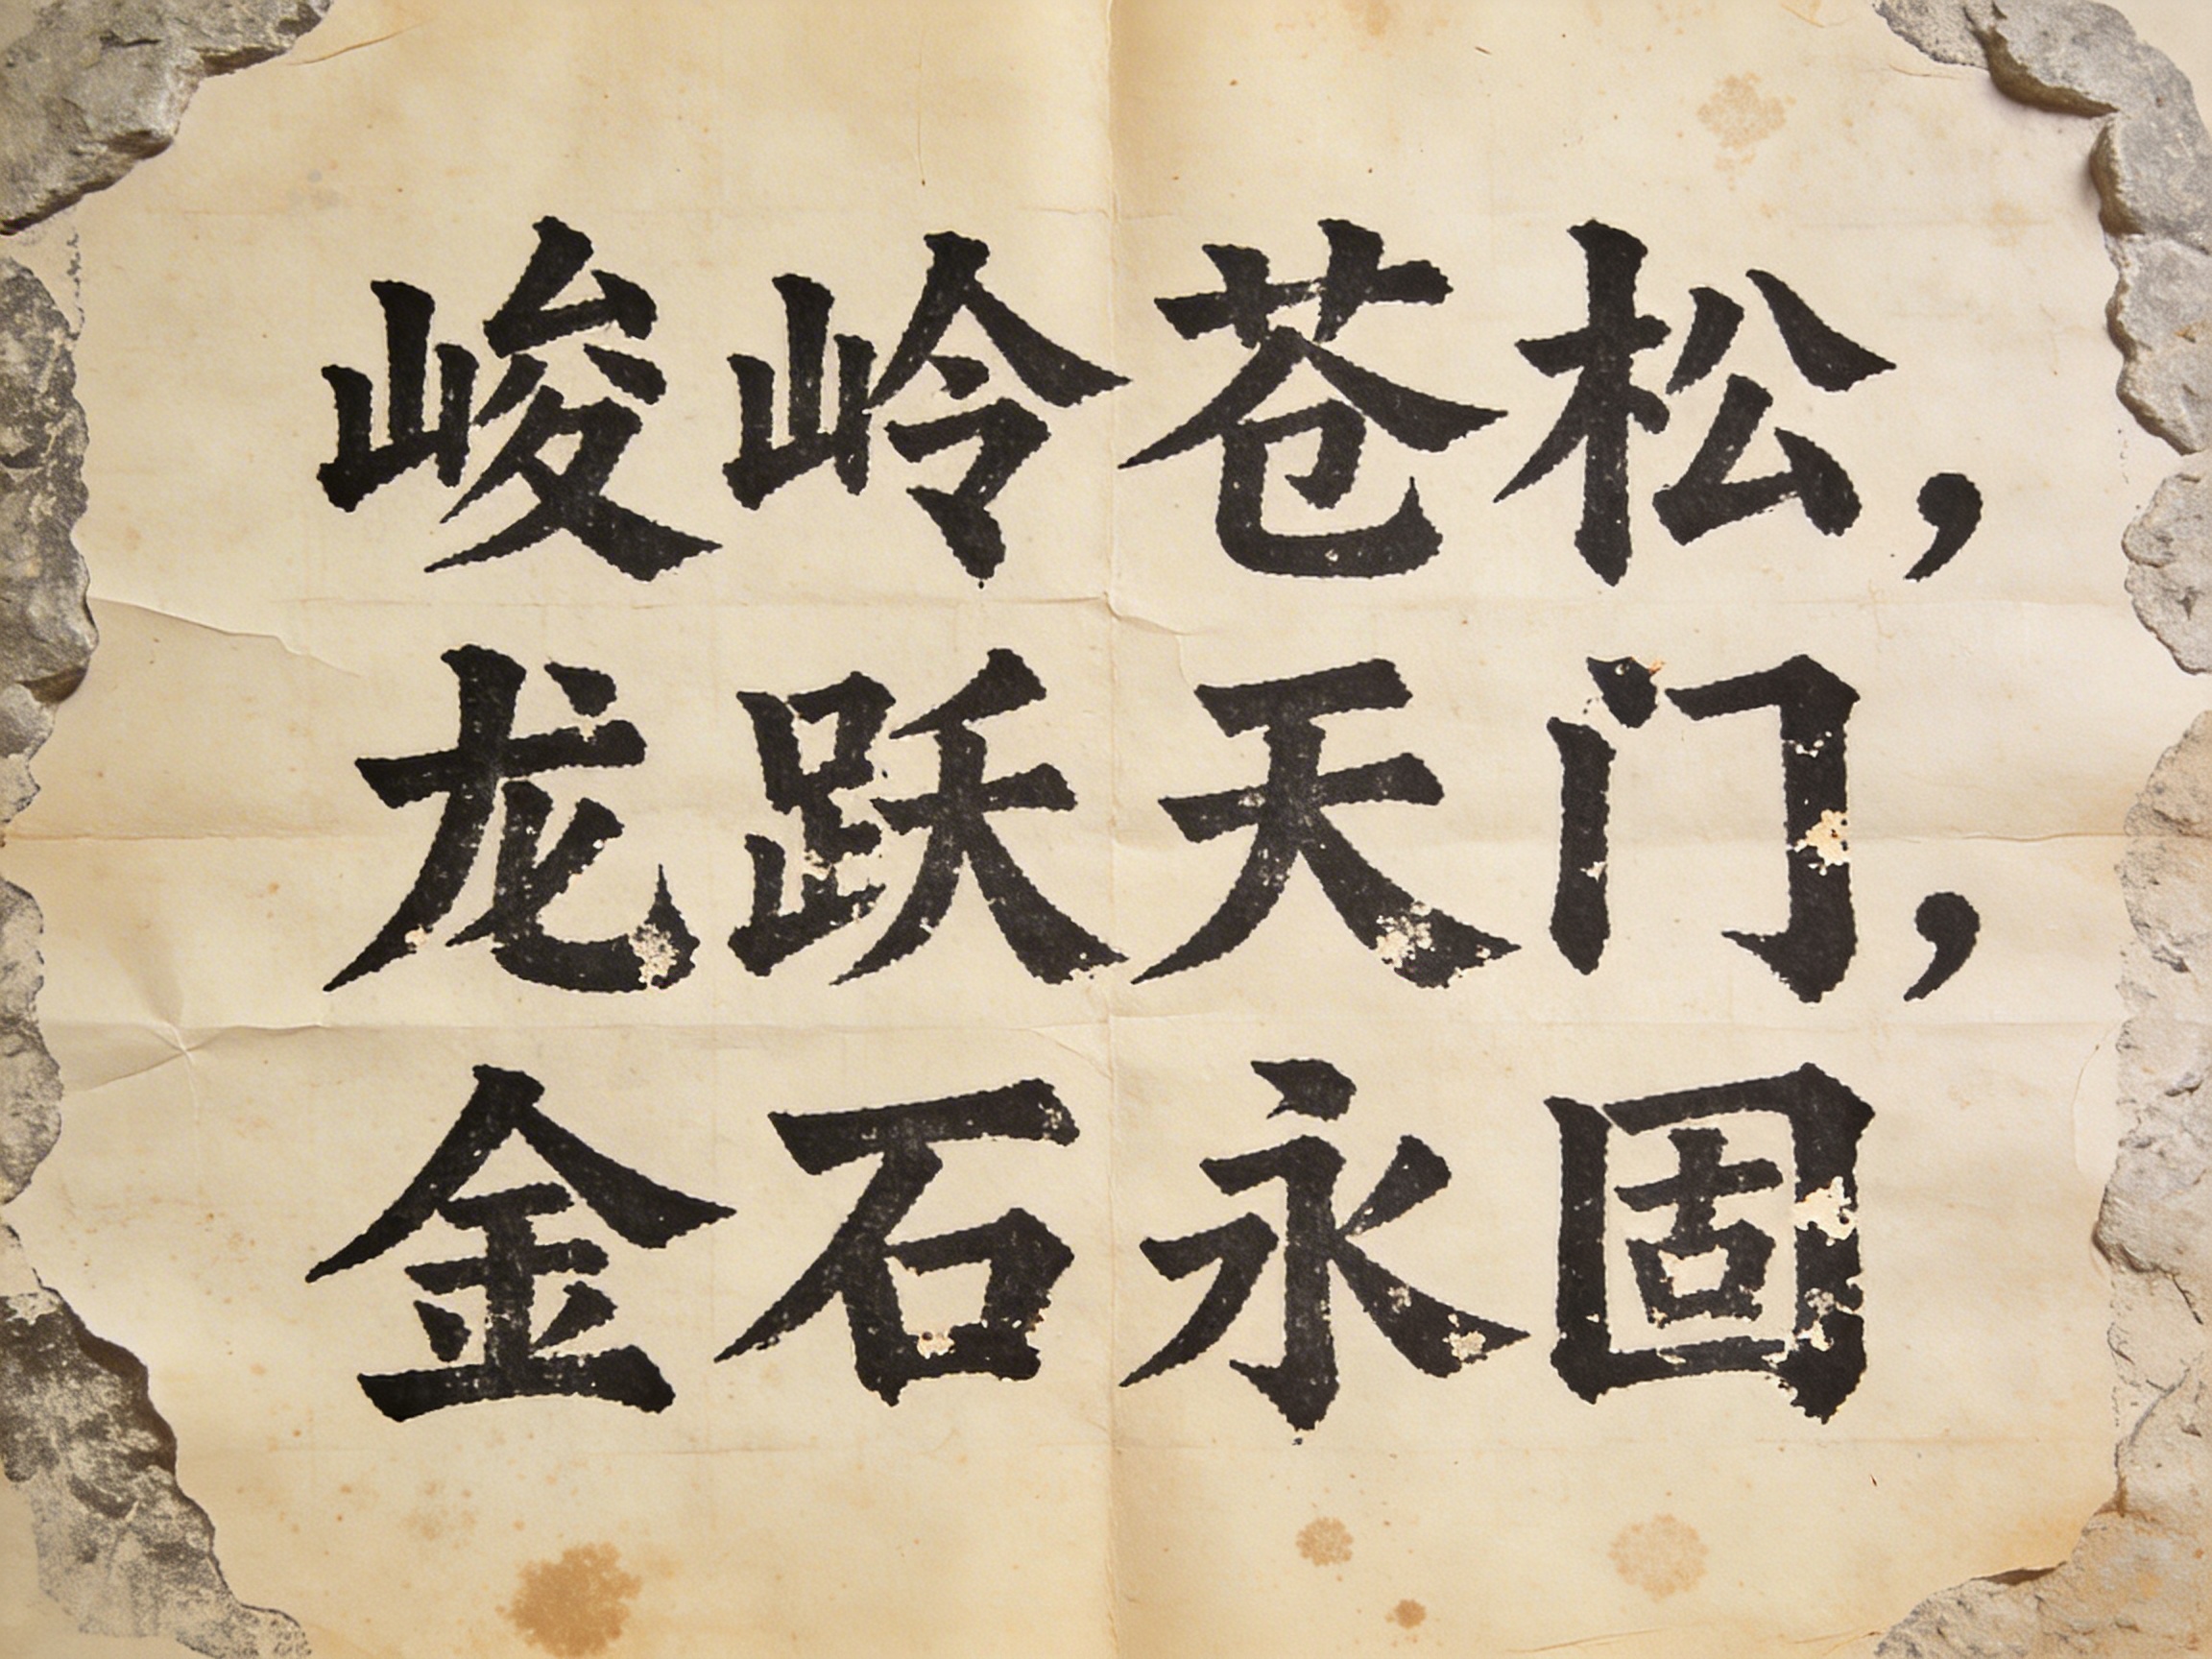 峻岭苍松，
龙跃天门，
金石永固